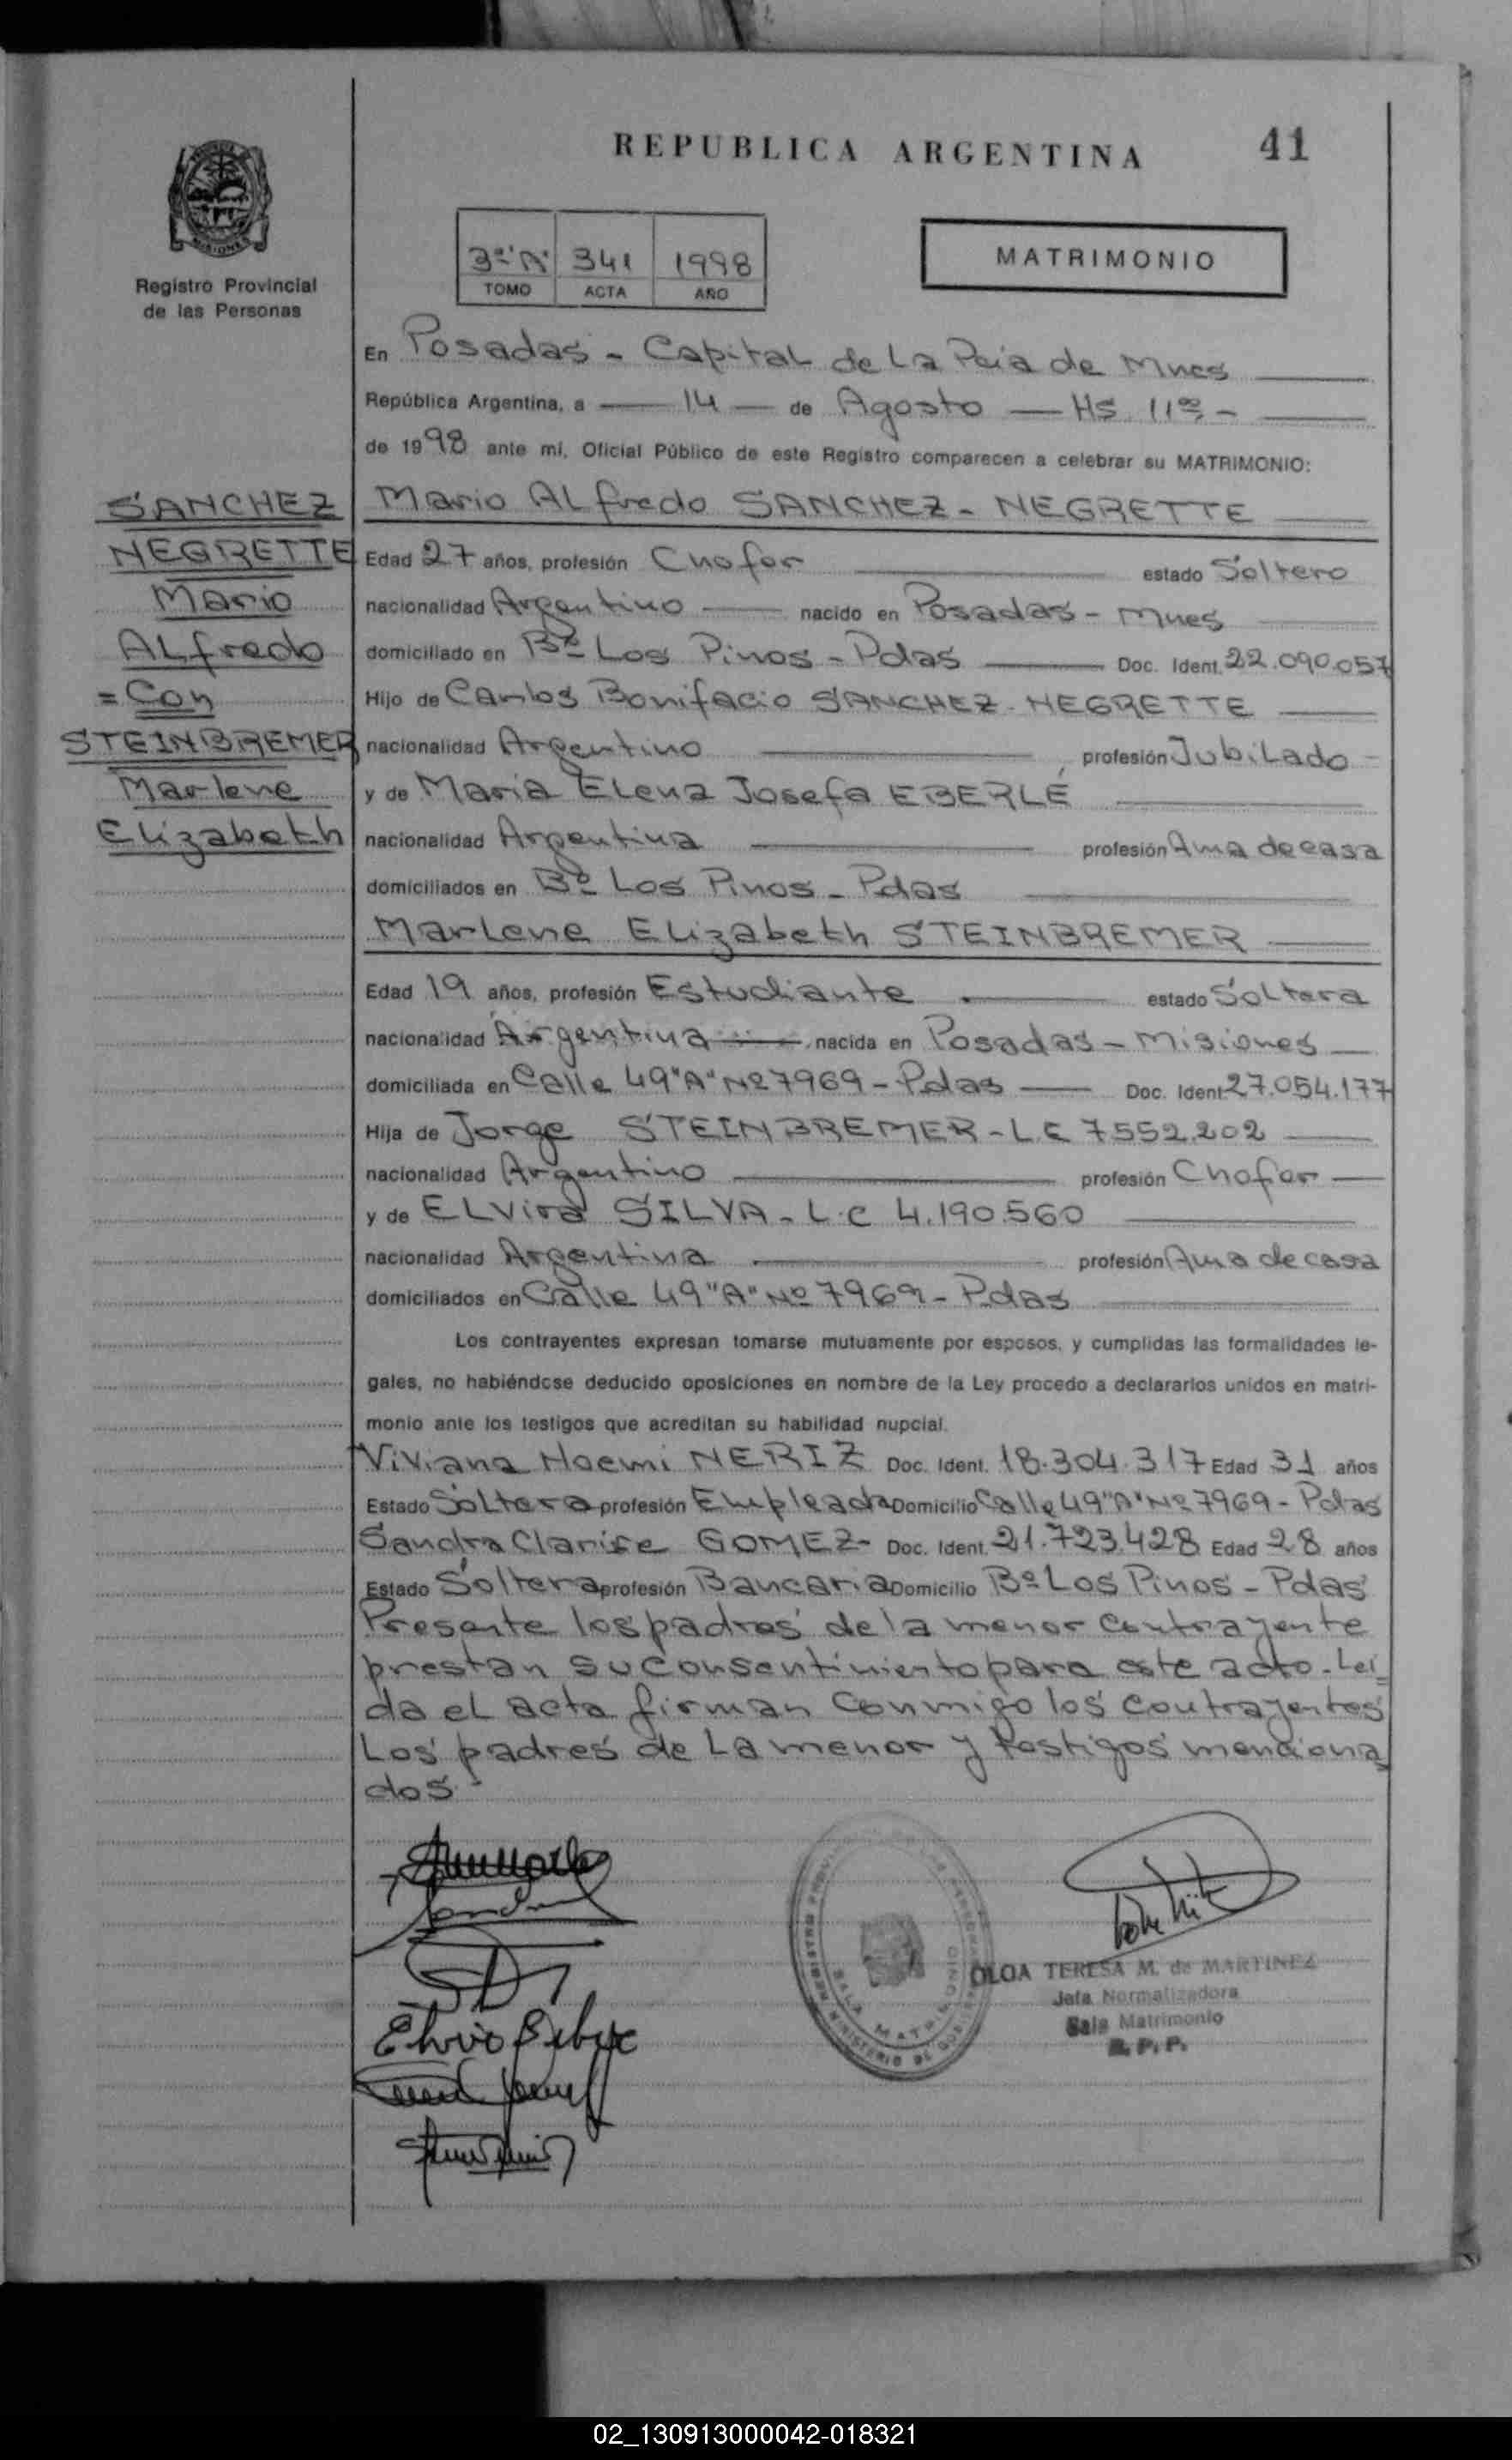 REPUBLICA ARGENTINA
41
3º "A" 341 1998
TOMO ACTA AÑO
MATRIMONIO
Registro Provincial
de las Personas
En Posadas - Capital de La Pcia de Mnes
República Argentina, a 14 de Agosto Hs 11
de 1998 ante mí, Oficial Público de este Registro comparecen a celebrar su MATRIMONIO:
SANCHEZ
NEGRETTE
Mario
Alfredo
= Con
STEINBREMER
Marlene
Elizabeth
Mario Alfredo SANCHEZ - NEGRETTE
Edad 27 años, profesión Chofer estado Soltero
nacionalidad Argentino nacido en Posadas - Mnes
domiciliado en Bº Los Pinos - Pdas Doc. Ident. 22.090.057
Hijo de Carlos Bonifacio SANCHEZ - NEGRETTE
nacionalidad Argentino profesión Jubilado
y de Maria Elena Josefa EBERLE
nacionalidad Argentina profesión Ama de casa
domiciliados en Bº Los Pinos - Pdas
Marlene Elizabeth STEINBREMER
Edad 19 años, profesión Estudiante estado Soltera
nacionalidad Argentina nacida en Posadas - Misiones
domiciliada en Calle 49 "A" Nº 7969 - Pdas Doc. Ident. 27.054.177
Hija de Jorge STEINBREMER - L E 7552.202
nacionalidad Argentino profesión Chofer
y de Elvira SILVA - L.C 4.190.560
nacionalidad Argentina profesión Ama de casa
domiciliados en Calle 49 "A" Nº 7969 - Pdas
Los contrayentes expresan tomarse mutuamente por esposos, y cumplidas las formalidades le-
gales, no habiéndose deducido oposiciones en nombre de la Ley procedo a declararlos unidos en matri-
monio ante los testigos que acreditan su habilidad nupcial.
Viviana Noemi NERIZ Doc. Ident. 18.304.317 Edad 31 años
Estado Soltera profesión Empleada Domicilio Calle 49 "A" Nº 7969 - Pdas
Sandra Clarise GOMEZ - Doc. Ident. 21.723.428 Edad 28 años
Estado Soltera profesión Bancaria Domicilio Bº Los Pinos - Pdas
Presente los padres de la menor contrayente
prestan su consentimiento para este acto. Leí=
da el acta firman conmigo los contrayentes
Los padres de La menor y testigos menciona
dos.-
OLGA TERESA M. de MARTINEZ
Jefa Normalizadora
Sala Matrimonio
R. P. P.
SALA MATRIMONIO
MINISTERIO DE
02_130913000042-018321